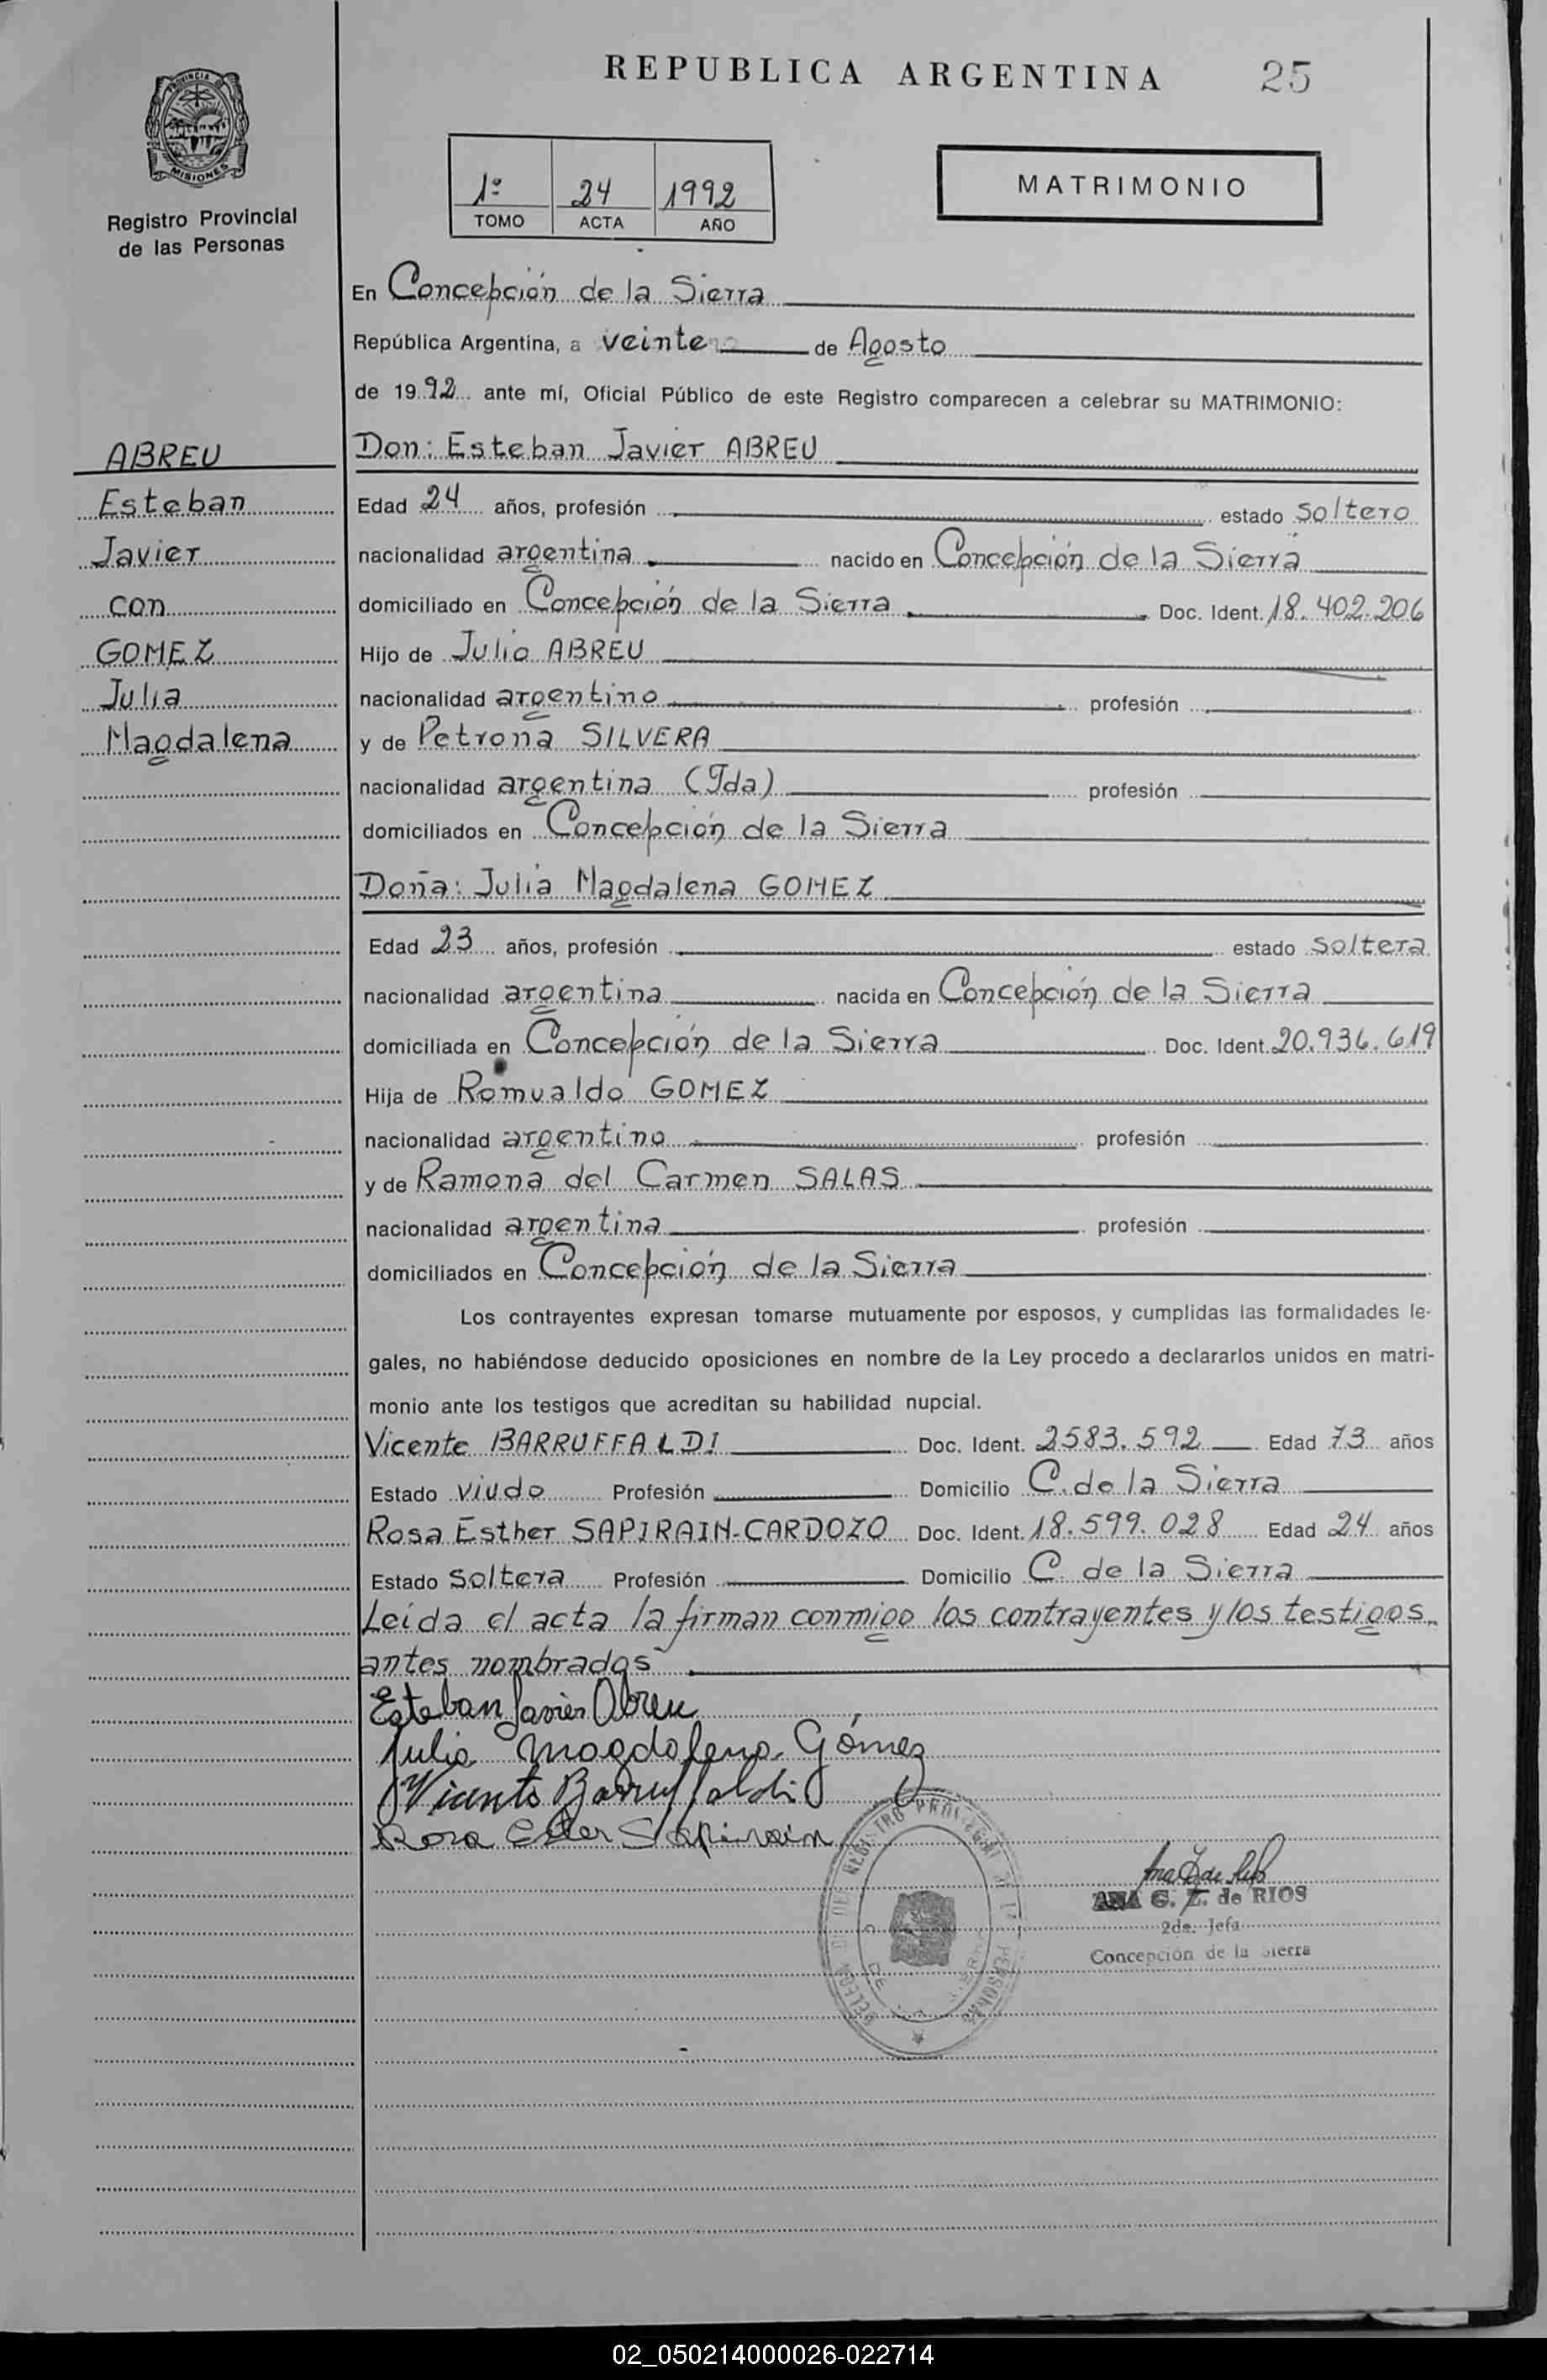 REPUBLICA ARGENTINA 25
PROVINCIA DE MISIONES
Registro Provincial
de las Personas
1º 24 1992
TOMO ACTA AÑO
MATRIMONIO
En Concepción de la Sierra
República Argentina, a veinte de Agosto
de 1992 ante mí, Oficial Público de este Registro comparecen a celebrar su MATRIMONIO:
ABREU
Esteban
Javier
con
GOMEZ
Julia
Magdalena
Don: Esteban Javier ABREU
Edad 24 años, profesión estado soltero
nacionalidad argentina nacido en Concepción de la Sierra
domiciliado en Concepción de la Sierra Doc. Ident. 18.402.206
Hijo de Julio ABREU
nacionalidad argentino profesión
y de Petrona SILVERA
nacionalidad argentina (Fda) profesión
domiciliados en Concepción de la Sierra
Doña: Julia Magdalena GOMEZ
Edad 23 años, profesión estado soltera
nacionalidad argentina nacida en Concepción de la Sierra
domiciliada en Concepción de la Sierra Doc. Ident. 20.936.619
Hija de Romualdo GOMEZ
nacionalidad argentino profesión
y de Ramona del Carmen SALAS
nacionalidad argentina profesión
domiciliados en Concepción de la Sierra
Los contrayentes expresan tomarse mutuamente por esposos, y cumplidas las formalidades le-
gales, no habiéndose deducido oposiciones en nombre de la Ley procedo a declararlos unidos en matri-
monio ante los testigos que acreditan su habilidad nupcial.
Vicente BARRUFFALDI Doc. Ident. 2583.592 Edad 73 años
Estado viudo Profesión Domicilio C. de la Sierra
Rosa Esther SAPIRAIN-CARDOZO Doc. Ident. 18.599.028 Edad 24 años
Estado soltera Profesión Domicilio C. de la Sierra
Leída el acta la firman conmigo los contrayentes y los testigos
antes nombrados
Esteban Javier Abreu
Julia Magdalena Gómez
Vicente Barruffaldi
Rosa Ester Sapirain
ANA G. Z. de RIOS
2da. Jefa
Concepción de la Sierra
02_050214000026-022714